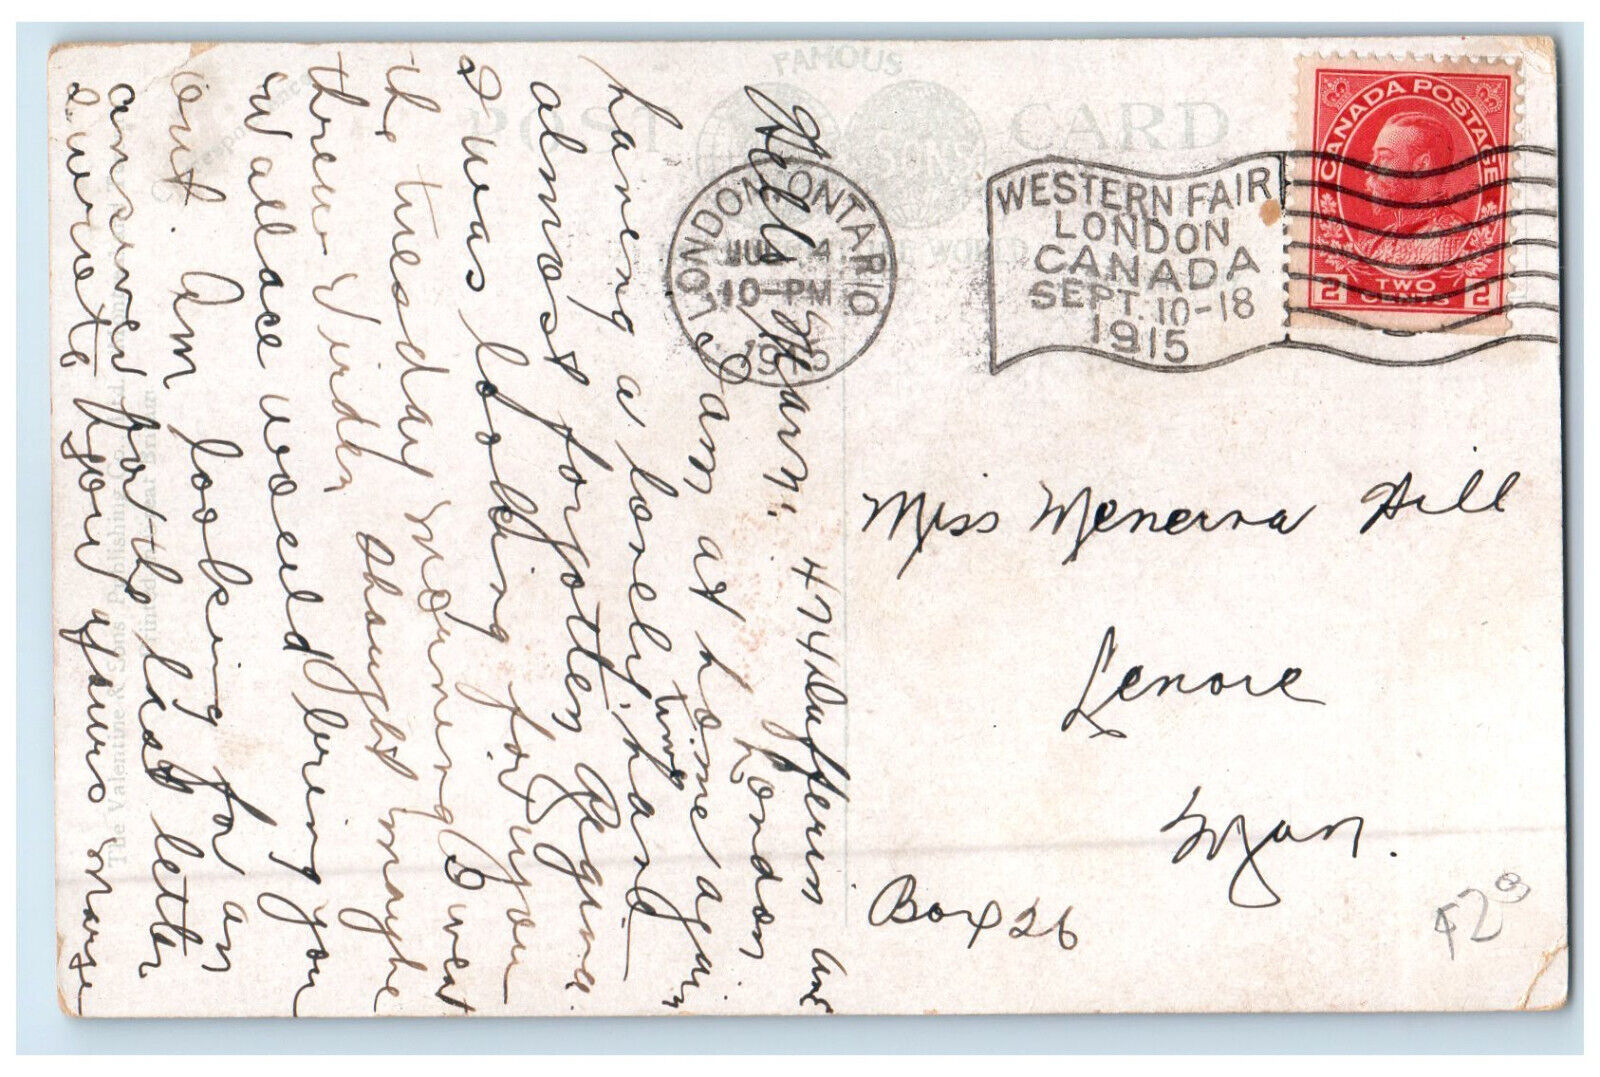 FAMOUS
POST CARD
& SONS
THE WORLD
LONDON, ONTARIO
JUL 4
10-PM
1915
WESTERN FAIR
LONDON
CANADA
SEPT. 10-18
1915
CANADA POSTAGE
2 TWO CENTS 2
Miss Menerva Hill
Lenore
Man.
Box 26
474 Dufferin Ave
London
Hello Marn.
I am at home again
having a lonely time
almost forgotten Regina.
I was looking for you
the tuesday morning I went
threw Virden thought maybe
Wallace would bring you
out. Am looking for an
answer for the last letter
I wrote you yours
The Valentine & Sons Publishing Co. Ltd.
Printed in Great Britain